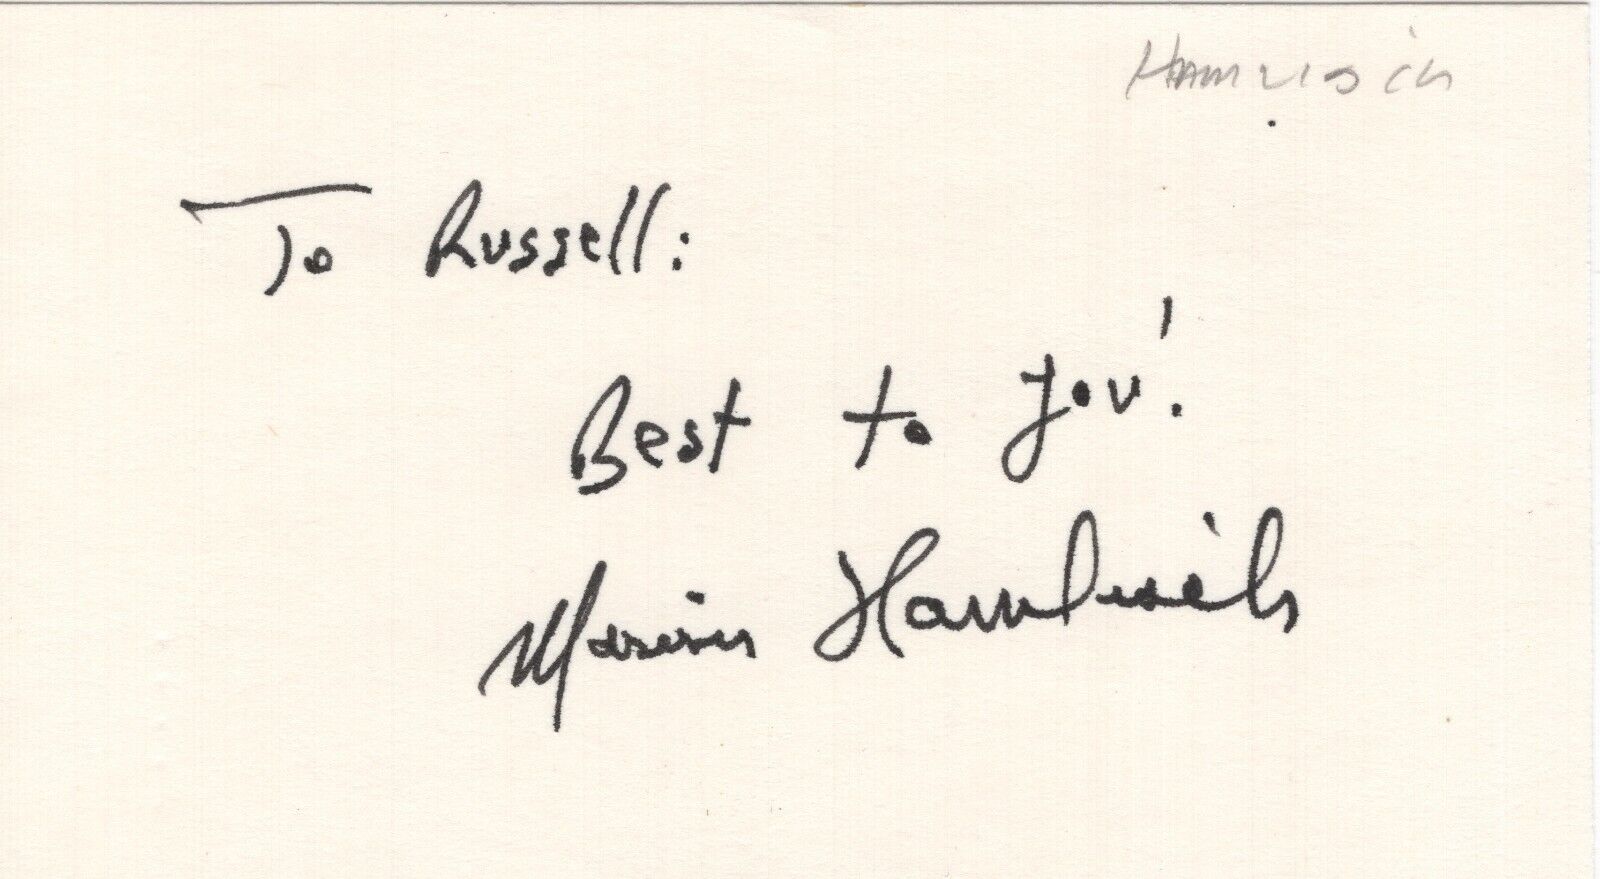 Hamlisch
To Russell:
Best to you!
Marvin Hamlisch